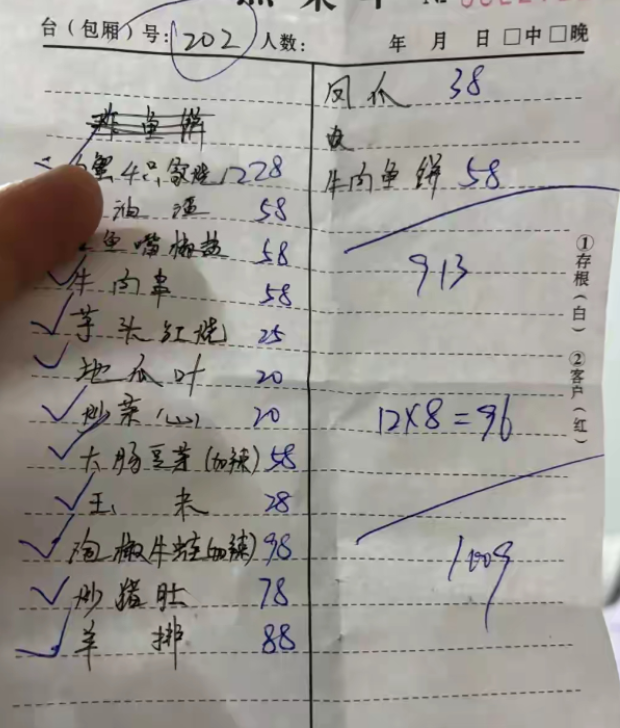 点菜单 №
台（包厢）号: 202 人数: 年 月 日 □中 □晚
蟹4只家烧 228
油渣 58
鱼嘴椒盐 58
牛肉串 58
芋头红烧 25
地瓜叶 20
炒菜(心) 20
大肠豆芽(加辣) 58
玉米 28
泡椒牛蛙(加辣) 98
炒猪肚 78
羊排 88
凤爪 38
牛肉鱼饼 58
913
12×8=96
1009
①存根（白） ②客户（红）